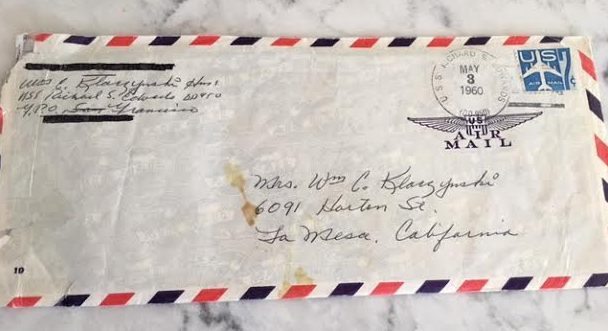 Wm C. Klaczynski
USS Richard S. Edwards DD950
San Francisco
U.S.S. RICHARD S. EDWARDS
MAY
3
1960
US
AIR MAIL
US
AIR
MAIL
Mrs. Wm C. Klaczynski
6091 Horton St.
La Mesa, California
10